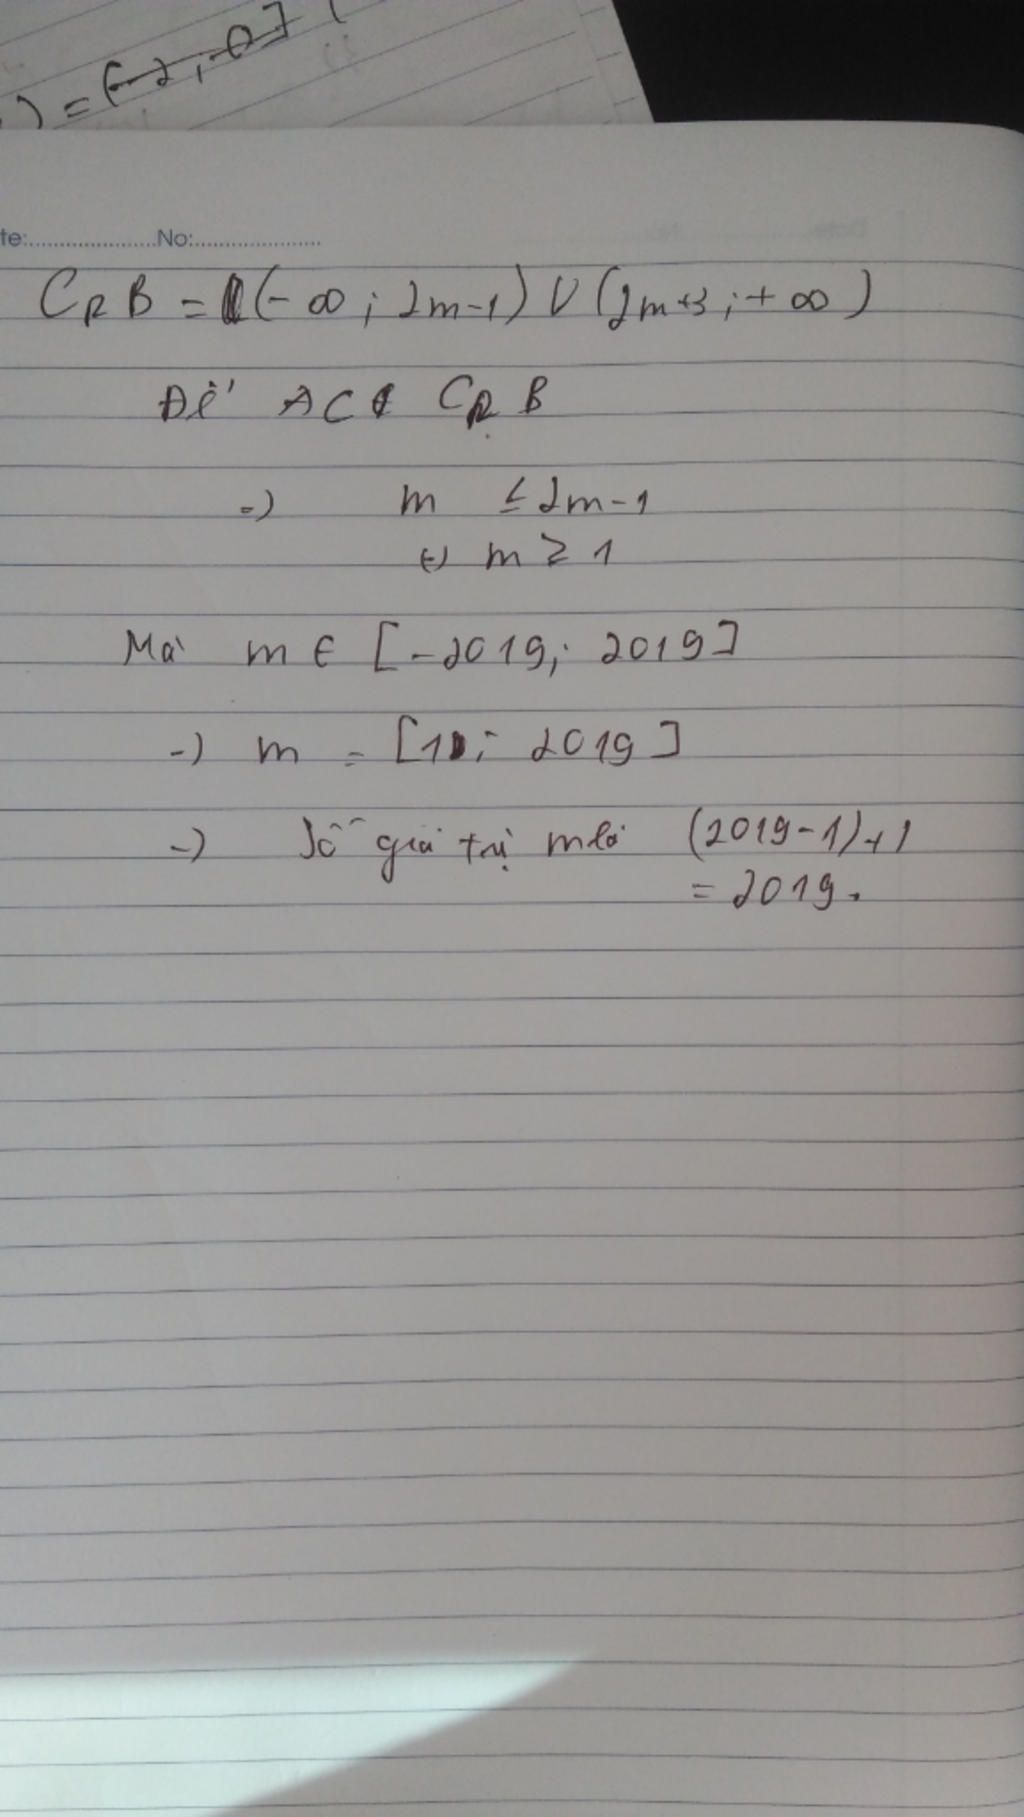 ) = [-2; 0]
te:....................No:....................
C_R B = (-∞; 2m-1) U (2m+3; +∞)
Để A ⊂ C_R B
=) m ≤ 2m-1
(=) m ≥ 1
Mà m ∈ [-2019; 2019]
=) m = [1; 2019]
=) Số giá trị m là (2019-1)+1
= 2019.